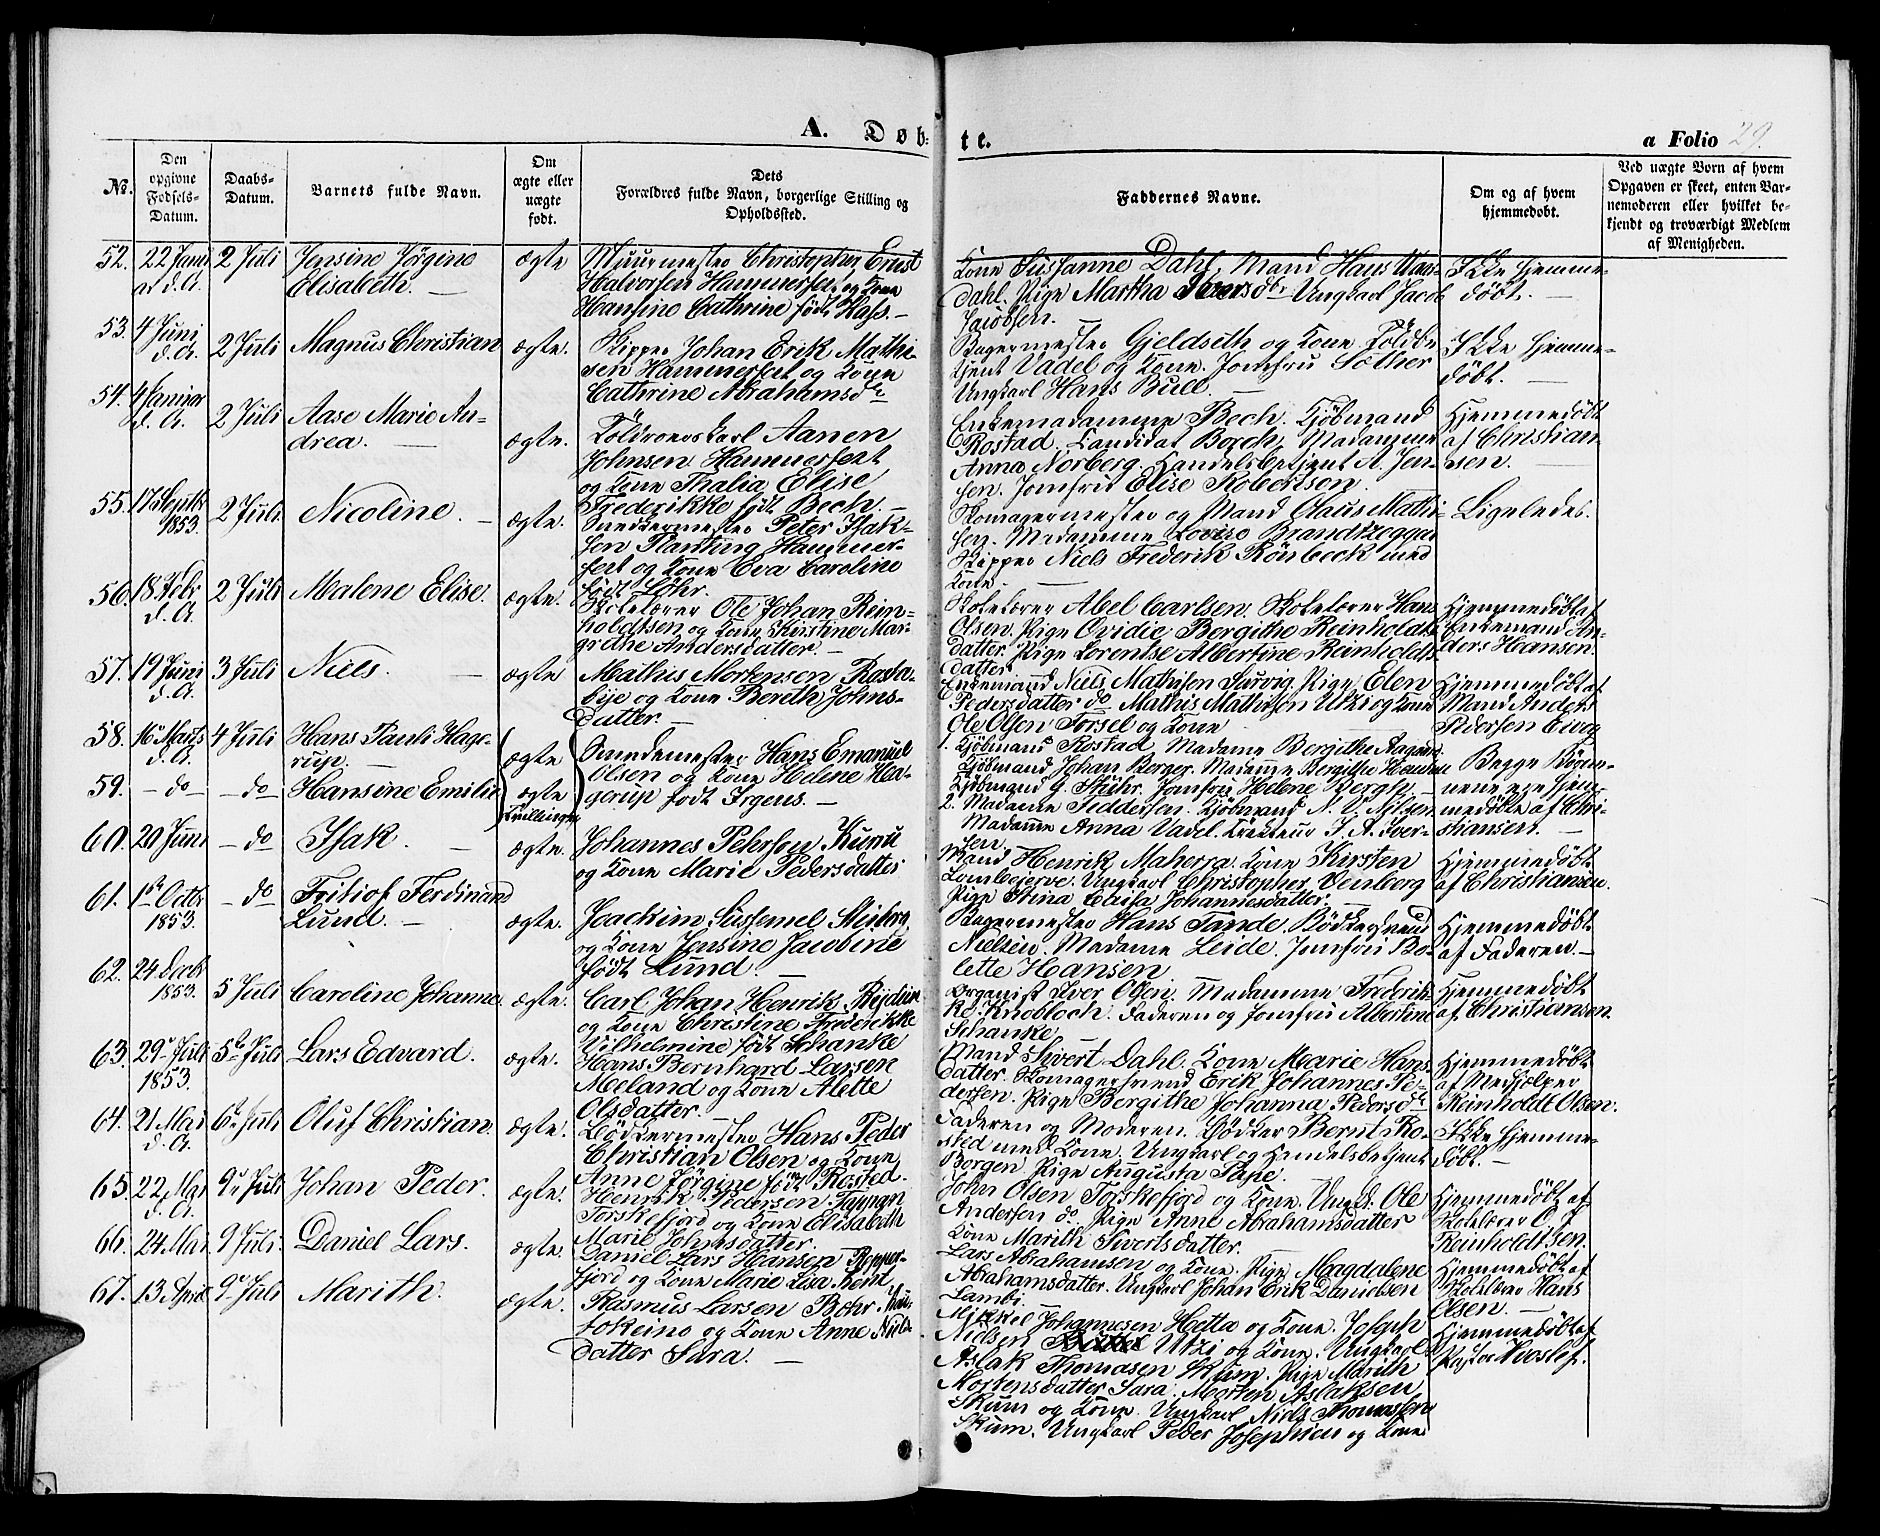 A. Døb-
te.
a Folio 29.
No.
Den
opgivne
Fødsels-
Datum.
Daabs-
Datum.
Barnets fulde Navn.
Om
ægte eller
uægte
født.
Dets
Forældres fulde Navn, borgerlige Stilling og
Opholdssted.
Faddernes Navne.
Om og af hvem
hjemmedøbt.
Ved uægte Born af hvem
Opgaven er skeet, enten Bar-
nemoderen eller hvilket be-
kjendt og troværdigt Medlem
af Menigheden.
52. 22 Juni 2 Juli Jensine Jørgine ægte Muurmester Christopher Ernst
d. A. Elisabeth. Halvorsen Hammerfest og Kone
Hansine Cathrine født Hass.
Kone Susanne Dahl, Mand Hans
Dahl. Pige Martha Iversdr. Ungkarl Jacob
Jacobsen.
Ikke hjemme-
døbt.
53. 4 Juni 2 Juli Magnus Christian ægte. Skipper Johan Erik Mathi-
d. A. sen Hammerfest og Kone
Cathrine Abrahamsdr.
Bagermester Gjeldseth og Kone. Toldbe-
tjent Vadel og Kone. Jomfru Sæther
Ungkarl Hans Bull.
Ikke hjemme-
døbt.
54. 4 Januar 2 Juli Aase Marie An- ægte. Toldroerskarl Aanen
d. A. drea. Johnsen Hammerfest
og Kone Thalia Elise
Frederikke født Bech.
Enkemadamme Bech. Kjøbmand
Rostad, Kandidat Borch, Madamme
Anna Norberg, Handelsbetjent A. Jen-
sen. Jomfru Elise Robertson.
Hjemmedøbt
af Christian-
sen.
55. 17 Septbr 2 Juli. Nicoline. ægte. Snedkermester Peter Isak-
1853. sen Planting Hammer-
fest og Kone Eva Caroline
født Løhr.
Skomagermester og Mand Claus Mathi-
sen. Madamme Lovise Brandtzegger
Skipper Niels Frederik Rönbeck med
Kone.
Ligeledes.
56. 18 Febr 2 Juli Malene Elise. ægte. Skolelærer Ole Johan Rein-
d. A. holdtsen og Kone Kirstine Mar-
grethe Andersdatter.
Skolelærer Abel Carlsen. Skolelærer Hans
Olsen. Pige Ovidie Bergithe Reinholdts-
datter. Pige Lorentse Albertine Reinholdts-
datter.
Hjemmedøbt af
Enkemand An-
ders Hansen.
57. 19 Juni 3 Juli Niels. ægte Mathis Mortensen Rosta-
d. A. bye og Kone Bereth Johns-
datter.
Enkemand Niels Mathisen Pige Elen
Pedersdatter do. Mathis Mathisen Utzi og Kone
Ole Olsen Torsel og Kone
Hjemmedøbt af
Mand Anders
Pedersen
58. 16 Marts 4 Juli Hans Pauli Hage- ægte Smedemester Hans Emanuel
d. A. rup. Olsen og Kone Helene Ha-
59. do do Hansine Emilie ægte gerup født Irgens.
Tvillinger
1. Kjøbmand Rostad, Madame Bergithe Aagaard
Kjøbmand Johan Berger. Madamme Bergithe
Kjøbmand G. Stuhr. Jomfru Helene Bergh.
2. Madame Feddersen. Kjøbmand N. V. Nilsen
Madamme Anna Vadel. Kræmmer J. A. Iver-
sen.
Begge Børne-
nene ere hjem-
medøbte af Chri-
stiansen.
60. 20 Juni do Isak. ægte. Johannes Petersen
og Kone Marie Pedersdatter
Mand Henrik Kone Kirsten
Ungkarl Christopher Venberg
Pige Stina Luisa Johannesdatter.
Hjemmedøbt
af Christiansen.
61. 1ste Octbr do Fritiof Ferdinand ægte. Joachim
1853. Lund. og Kone Jensine Jacobine
født Lund.
Bagermester Hans Tande. Bødkersvend
Nielsen. Madame Leide. Jomfru Bo-
lette Hansen.
Hjemmedøbt
af Faderen.
62. 24 Decbr 5 Juli Caroline Johanne. ægte. Carl Johan Henrik
1853. og Kone Christine Frederikke
Vilhelmine født Schanke
Organist Iver Olsen. Madamme Frederik-
ke Knobloch. Faderen og Jomfru Albertine
Schanke.
Hjemmedøbt
af Christiansen.
63. 29 Juli 5te Juli Lars Edvard. ægte. Hans Bernhard Larsen
1853. Meland og Kone Alette
Olsdatter.
Mand Sivert Dahl. Kone Marie Hans-
datter. Skomagersvend Erik Johannes Pe-
dersen. Pige Bergithe Johanna Pedersdr.
Hjemmedøbt
af Medhjelper
Reinholdt Olsen.
64. 21 Mai 6te Juli Oluf Christian. ægte. Bødkermester Hans Peder
d. A. Christian Olsen og Kone
Anne Jørgine født Rosted.
Faderen og Moderen. Bødker Bernt Ro-
sted med Kone. Ungkarl og Handelsbetjent
Borgen. Pige Augusta Pape.
Ikke hjemme-
døbt.
65. 22 Mai 9 Juli Johan Peder. ægte. Henrik Pedersen
d. A. Torskefjord og Kone Elisabeth
Marie Johnsdatter.
John Olsen Torskefjord og Kone. Ungk. Ole
Andersen do. Pige Anne Abrahamsdatter
Kone Marith Sivertsdatter.
Hjemmedøbt af
Skolelærer O. J.
Reinholdtsen.
66. 24 Mai 9 Juli. Daniel Lars. ægte. Daniel Lars Hansen Repper-
fjord og Kone Marie Lisa
Lars Abrahamsen og Kone. Pige Magdalene
Abrahamsdatter. Ungkarl Johan Erik Danielsen
Lambi.
Hjemmedøbt af
Skolelærer Hans
Olsen.
67. 13 April 9 Juli Marith. ægte. Rasmus Larsen Bohr Kau-
tokeino og Kone Anne Niels-
datter Sara.
Mikkel Johannesen Hætta og Kone. Joseph
Nielsen Utzi og Kone. Ungkarl
Aslak Thomasen Skum. Pige Marith
Mortensdatter Sara. Morten Aslaksen
Skum og Kone. Ungkarl Niels Thomassen
Skum. Ungkarl Peder Josephsen og Kone
Hjemmedøbt af
Pastor Hvoslef.